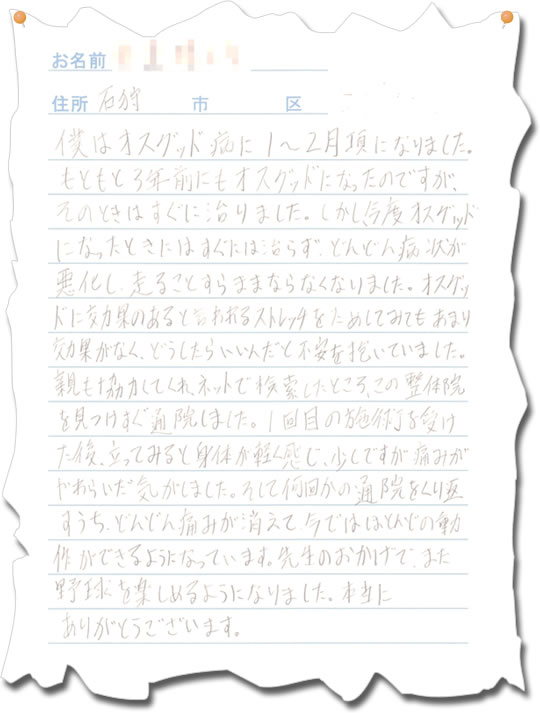 お名前
住所 石狩 市 区
僕はオスグッド病に1〜2月頃になりました。
もともと3年前にもオスグッドになったのですが、
そのときはすぐに治りました。しかし今度オスグッド
になったときにはすぐには治らず、どんどん病状が
悪化し、走ることすらままならなくないました。オスグッ
ドに効果のあると言われるストレッチをためしてみてもあまり
効果がなく、どうしたらいいんだと不安を抱いていました。
親も協力してくれ、ネットで検索したところ、この整体院
を見つけすぐ通院しました。1回目の施術を受け
た後、立ってみると身体が軽く感じ、少しですが痛みが
やわらいだ気がしました。そして何回かの通院をくり返
すうち、どんどん痛みが消えて、今ではほとんどの動
作ができるようになっています。先生のおかげで、また
野球を楽しめるようになりました。本当に
ありがとうございます。